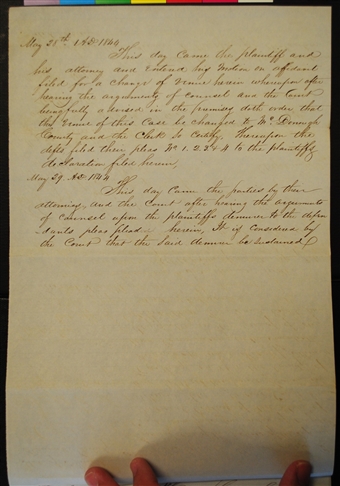 May 21st AD 1844
This day came the plaintiff and
his attorney and entered his motion on affidavit
filed for a change of Venue herein whereupon after
hearing the arguments of counsel and the Court
being fully advised in the premises doth order that
the Venue of this Case be changed to Mc Donough
County and the Clerk so Certify. Thereupon the
defts filed their pleas No 1. 2. 3 & 4 to the plaintiffs
declaration filed herein,
May 29. AD 1844
This day Came the parties by their
attornies, and the Court after hearing the arguments
of counsel upon the plaintiffs demurrer to the defen
dants pleas plead herein, It is Considered by
the Court that the Said demurrer be Sustained